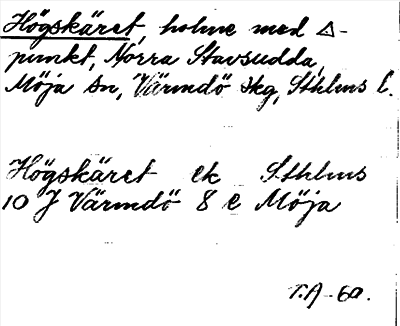 Högskäret, holme med △-
punkt, Norra Stavsudda,
Möja sn, Värmdö skg, Sthlms l.
Högskäret ek Sthlms
10 J Värmdö 8 e Möja
T.A -60.